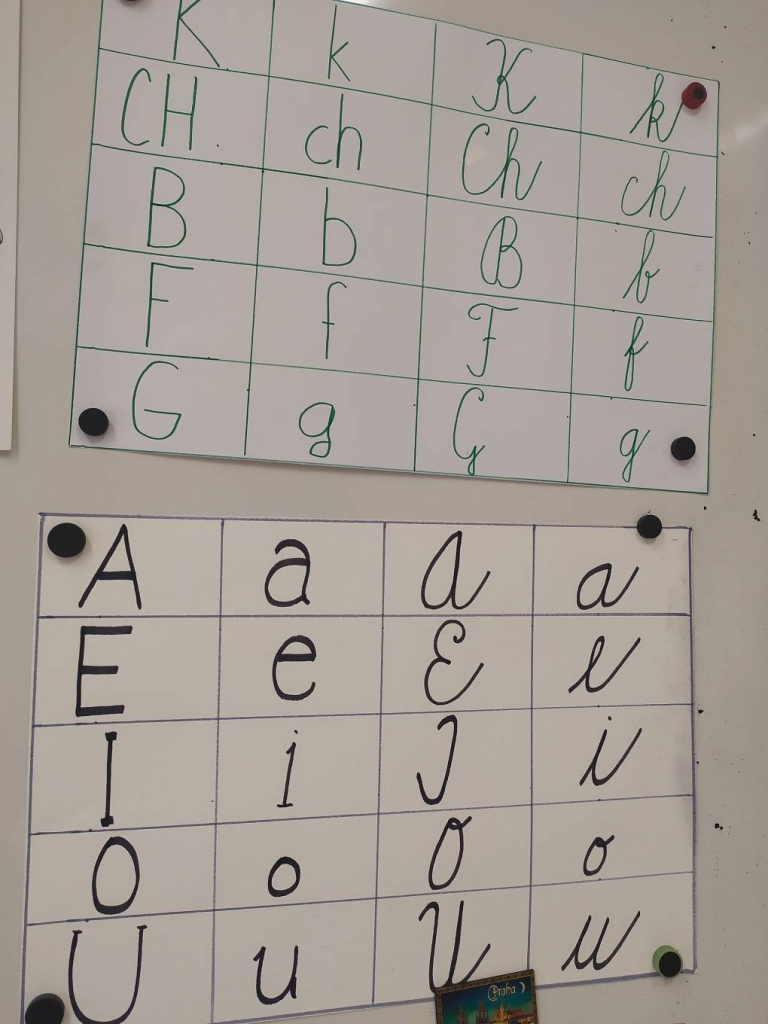 K k K k
CH ch Ch ch
B b B b
F f F f
G g G g
A a A a
E e E e
I i I i
O o O o
U u U u
Praha